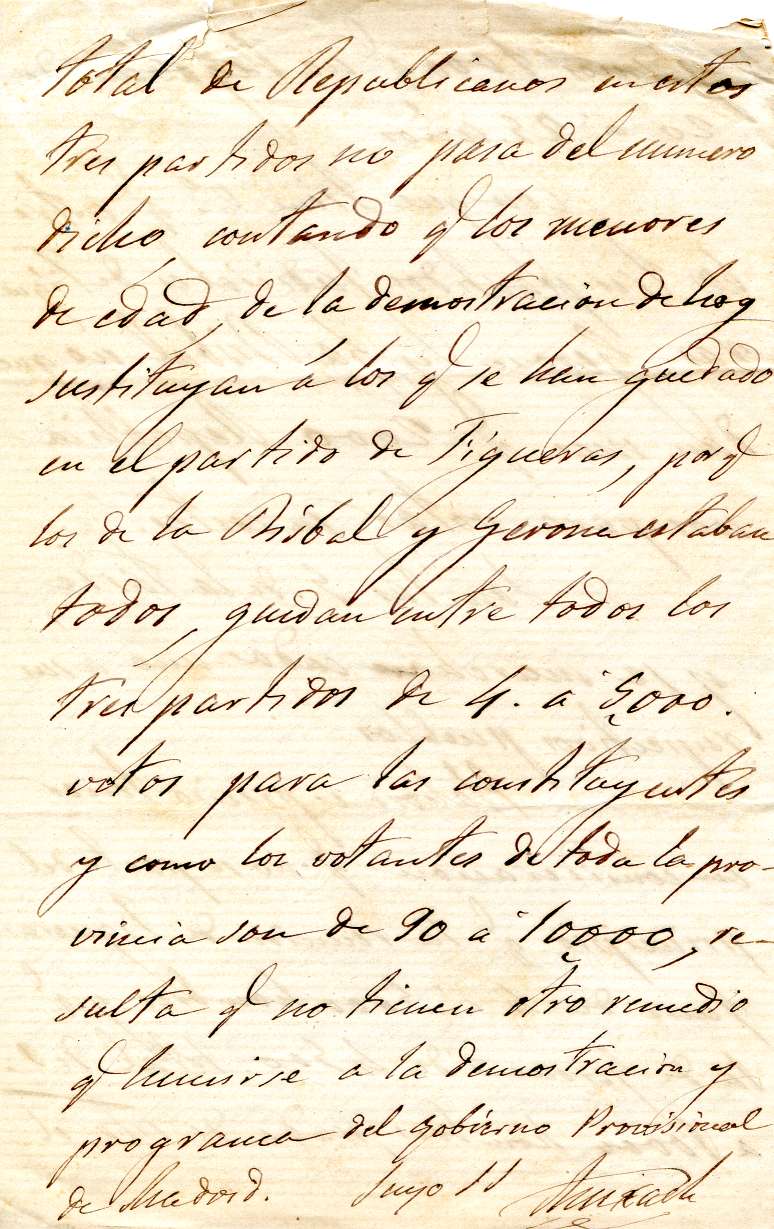 total de Republicanos en estos
tres partidos no pasa del numero
dicho, contando q.e los menores
de edad, de la demostracion de hoy
sustituyan á los q.e se han quedado
en el partido de Figueras, porq.e
los de la Bisbal y Gerona estaban
todos, quedan entre todos los
tres partidos de 4. a 5000.
votos para las constituyentes
y como los votantes de toda la pro-
vincia son de 90 a 10000, re-
sulta q.e no tienen otro remedio
q.e hunirse a la demostracion y
programa del Gobierno Provisional
de Madrid. Suyo